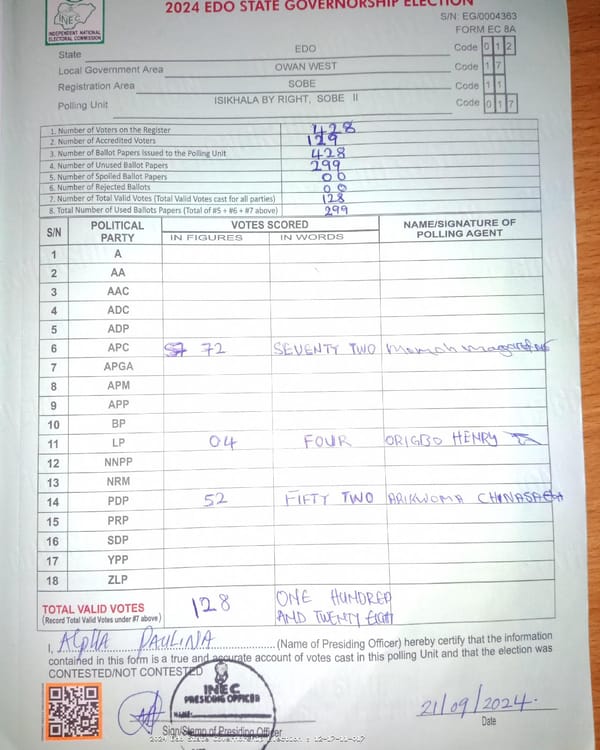 2024 EDO STATE GOVERNORSHIP ELECTION
INEC
INDEPENDENT NATIONAL ELECTORAL COMMISSION
S/N: EG/0004363
FORM EC 8A
State EDO Code 0 1 2
Local Government Area OWAN WEST Code 1 7
Registration Area SOBE Code 1 1
Polling Unit ISIKHALA BY RIGHT, SOBE II Code 0 1 7
1. Number of Voters on the Register 428
2. Number of Accredited Voters 129
3. Number of Ballot Papers Issued to the Polling Unit 428
4. Number of Unused Ballot Papers 299
5. Number of Spoiled Ballot Papers 00
6. Number of Rejected Ballots 00
7. Number of Total Valid Votes (Total Valid Votes cast for all parties) 128
8. Total Number of Used Ballots Papers (Total of #5 + #6 + #7 above) 299
S/N POLITICAL PARTY VOTES SCORED NAME/SIGNATURE OF POLLING AGENT
IN FIGURES IN WORDS
1 A
2 AA
3 AAC
4 ADC
5 ADP
6 APC 72 SEVENTY TWO Momoh
7 APGA
8 APM
9 APP
10 BP
11 LP 04 FOUR ORIGBO HENRY
12 NNPP
13 NRM
14 PDP 52 FIFTY TWO ARIKWOMA
15 PRP
16 SDP
17 YPP
18 ZLP
TOTAL VALID VOTES 128 ONE HUNDRED AND TWENTY EIGHT
(Record Total Valid Votes under #7 above)
I, Alpha PAULINA (Name of Presiding Officer) hereby certify that the information
contained in this form is a true and accurate account of votes cast in this polling Unit and that the election was
CONTESTED/NOT CONTESTED
INEC
PRESIDING OFFICER
NAME:
21/09/2024.
Sign/Stamp of Presiding Officer Date
2024 Edo State Governorship Election : 12-17-11-017